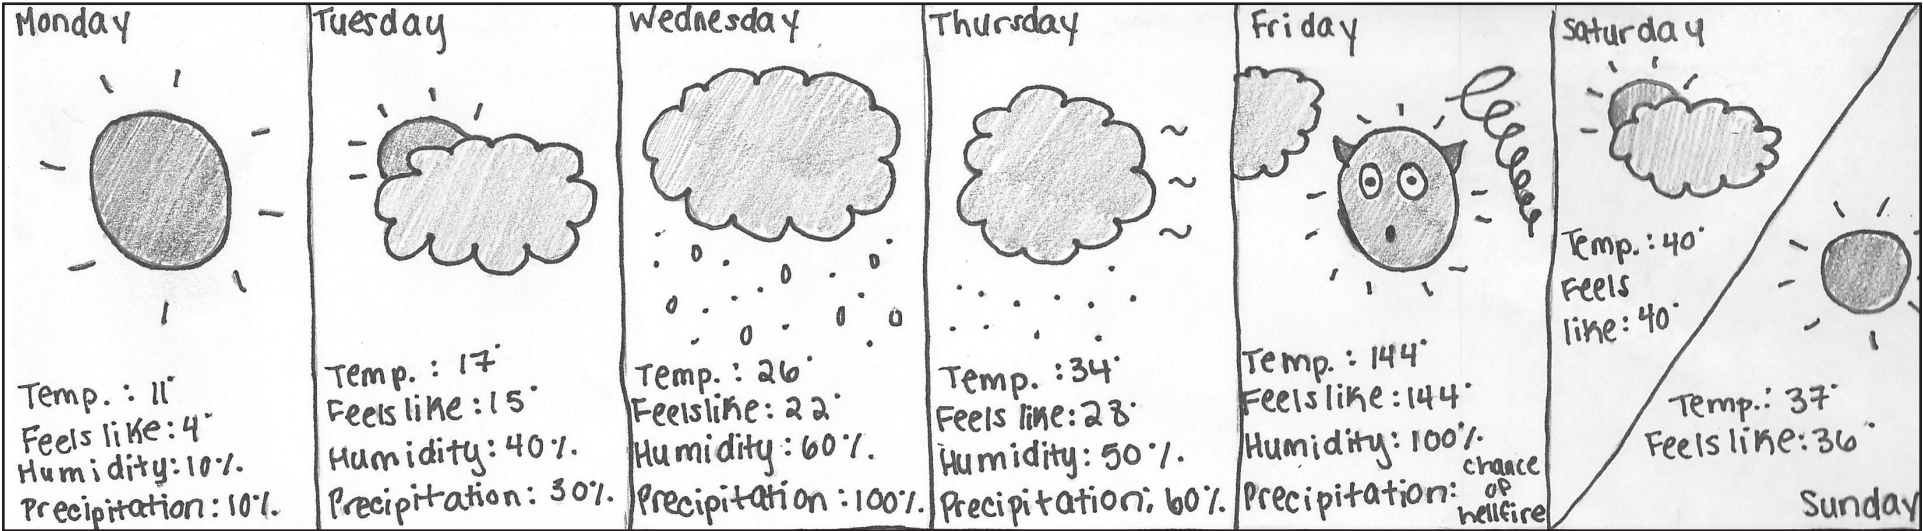 Monday
Temp.: 11°
Feels like: 4°
Humidity: 10%.
Precipitation: 10%.
Tuesday
Temp.: 17°
Feels like: 15°
Humidity: 40%.
Precipitation: 30%.
Wednesday
Temp.: 26°
Feels like: 22°
Humidity: 60%.
Precipitation: 100%.
Thursday
Temp.: 34°
Feels like: 28°
Humidity: 50%.
Precipitation: 60%.
Friday
Temp.: 144°
Feels like: 144°
Humidity: 100%.
Precipitation: chance
of
hellfire
Saturday
Temp.: 40°
Feels
like: 40°
Temp.: 37°
Feels like: 36°
Sunday